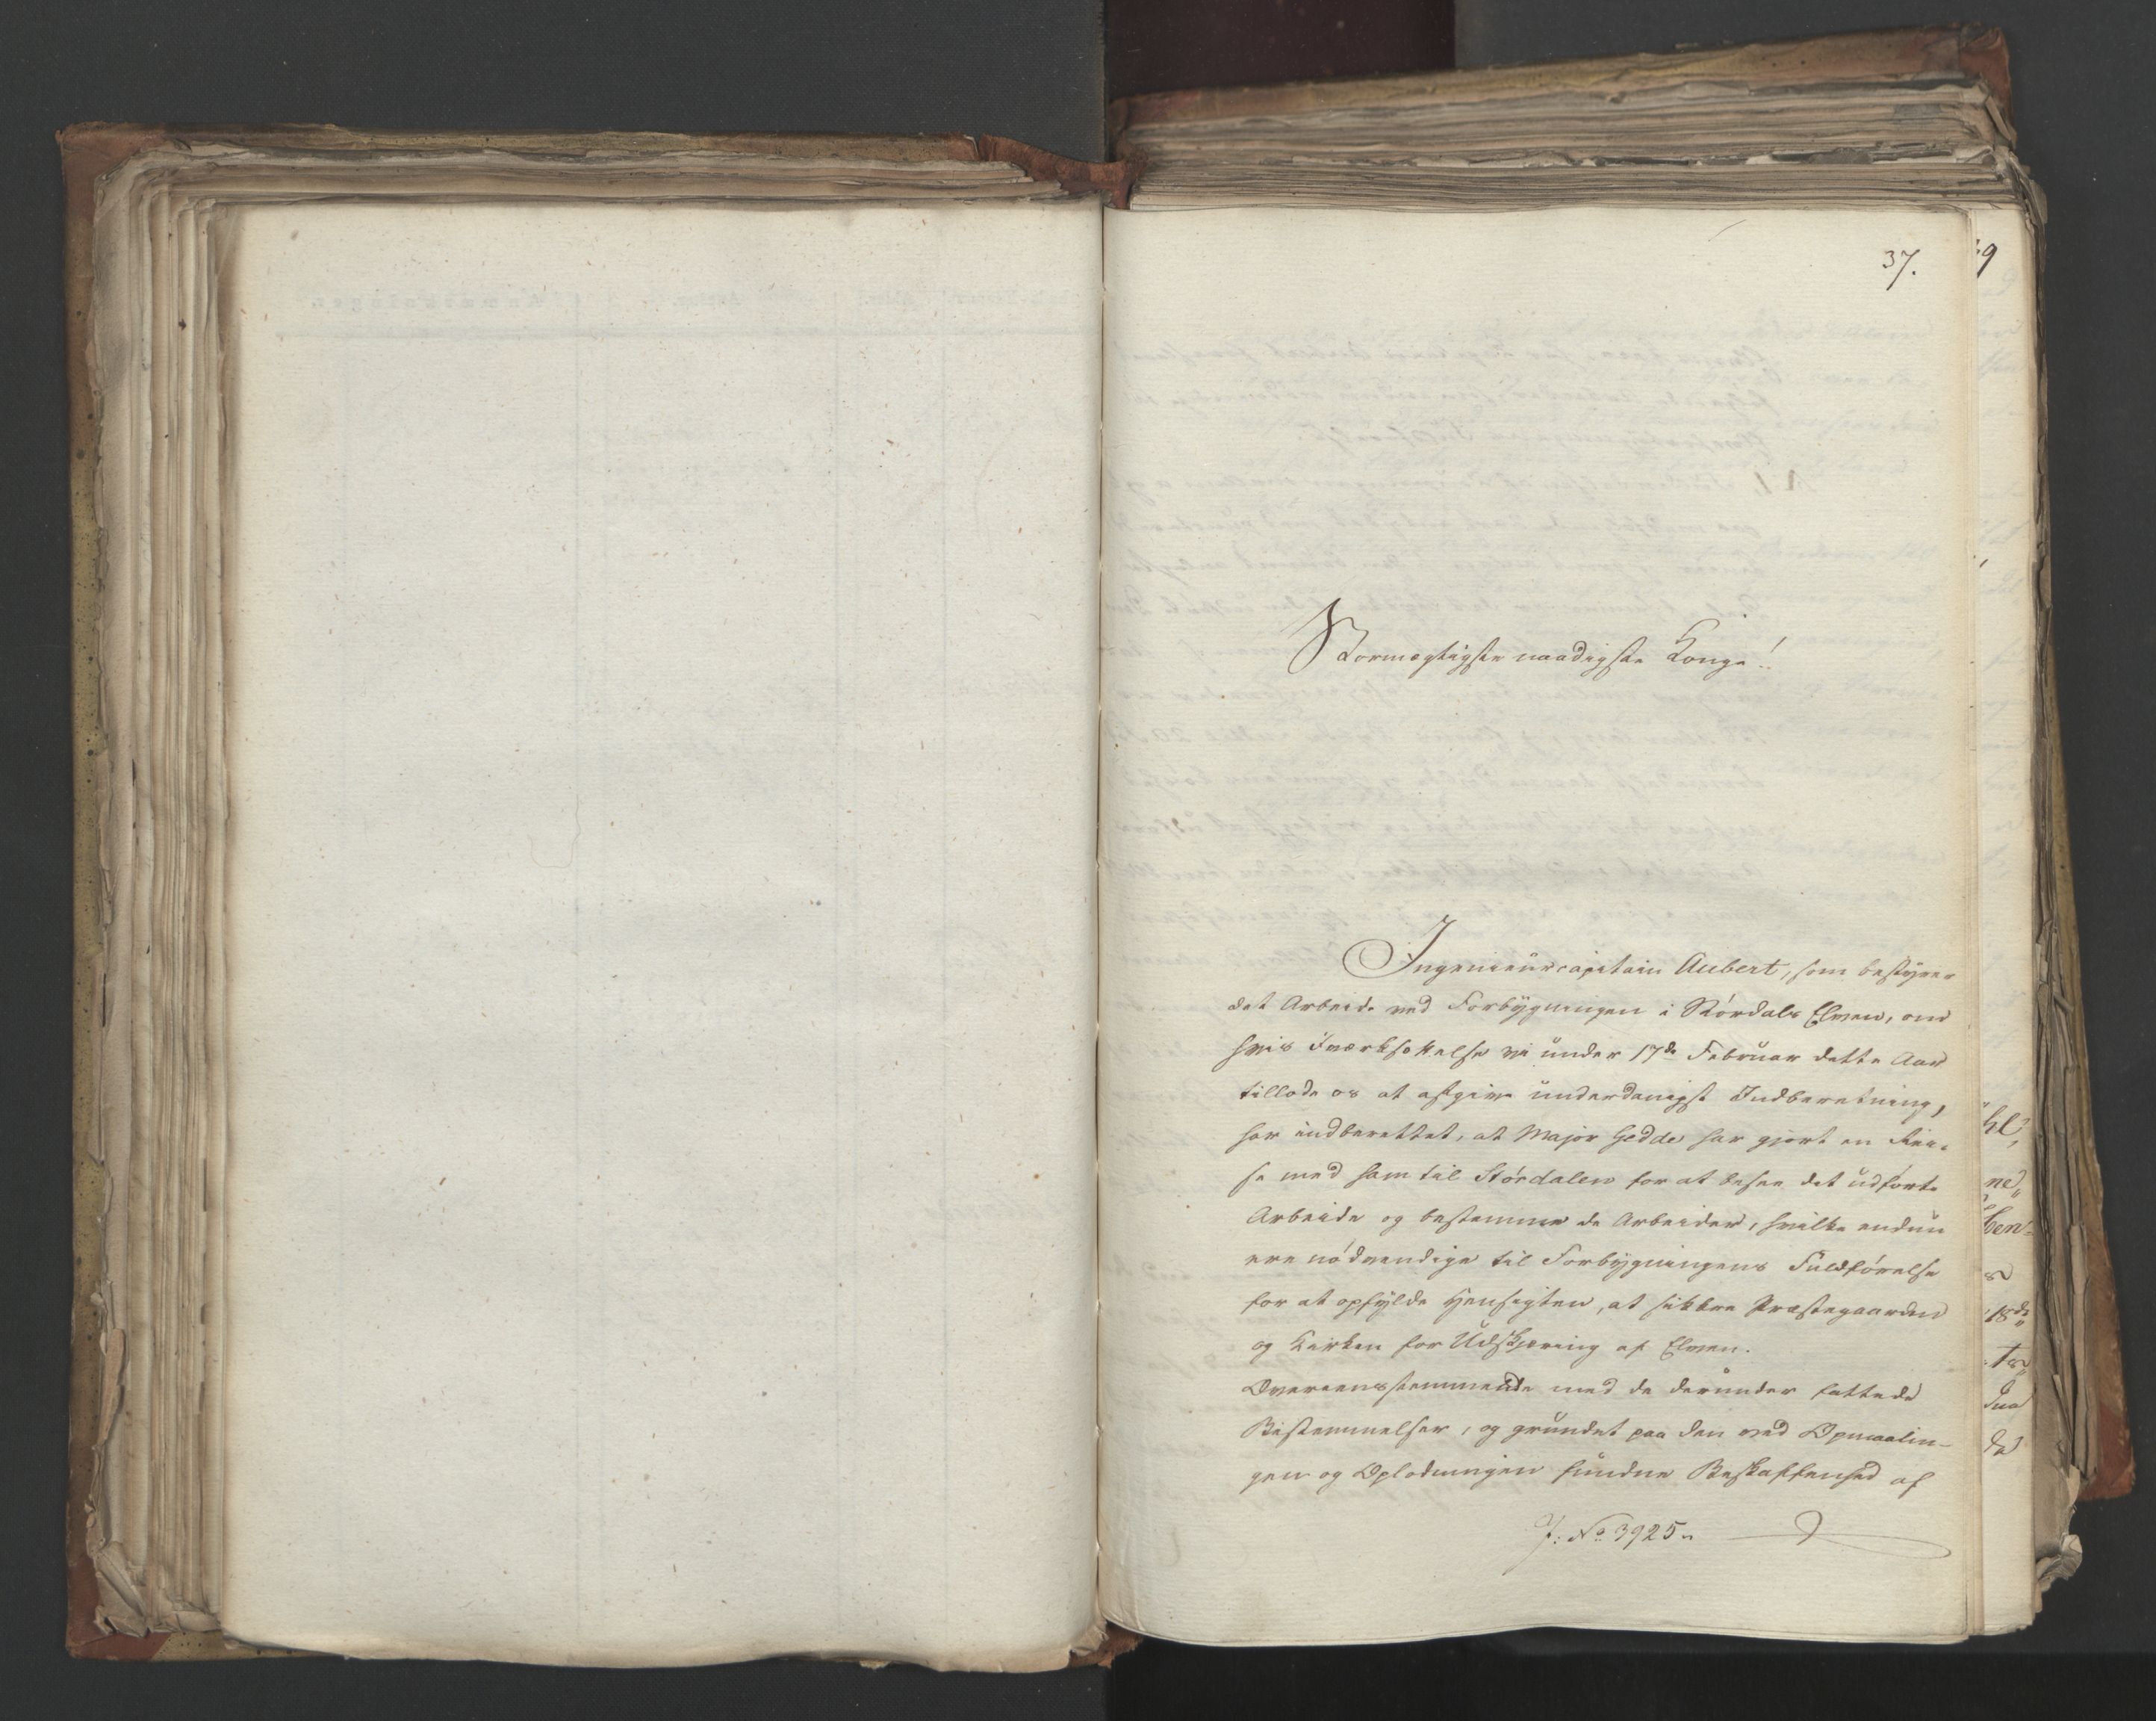 37.
Stormægtigste naadigste Konge!
Ingenieurcapitain Aubert, som bestyrer
det Arbeide ved Forbygningen i Stördals Elven, om
hvis Iværksættelse vi under 17de Februar dette Aar
tillode os at afgive underdanigst Indberetning,
har indberettet, at Major Gedde har gjort en Rei-
se med ham til Stördalen for at besee det udførte
Arbeide og bestemme de Arbeider, hvilke endnu
ere nödvendige til Forbygningens Fuldförelse
for at opfylde Hensigten, at sikkre Præstegaarden
og Kirken for Udskjæring af Elven.
Overeensstemmende med de derunder fattede
Bestemmelser, og grundet paa den ved Opmaalin-
gen og Oplodningen fundne Beskaffenhed af
J: No 3925.